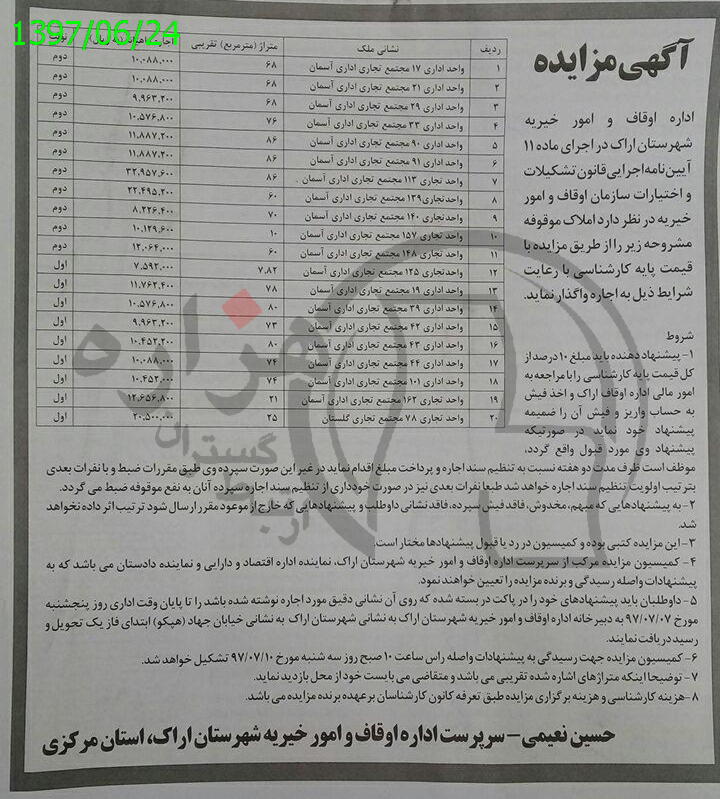 1397/06/24
آگهی مزایده
اداره اوقاف و امور خیریه
شهرستان اراک در اجرای ماده ۱۱
آیین‌نامه اجرایی قانون تشکیلات
و اختیارات سازمان اوقاف و امور
خیریه در نظر دارد املاک موقوفه
مشروحه زیر را از طریق مزایده با
قیمت پایه کارشناسی با رعایت
شرایط ذیل به اجاره واگذار نماید.
ردیف نشانی ملک متراژ (مترمربع) تقریبی نوبت
۱ واحد اداری ۱۷ مجتمع تجاری اداری آسمان ۶۸ ۱۰,۰۸۸,۰۰۰ دوم
۲ واحد اداری ۲۱ مجتمع تجاری اداری آسمان ۶۸ ۱۰,۰۸۸,۰۰۰ دوم
۳ واحد اداری ۲۹ مجتمع تجاری اداری آسمان ۶۸ ۹,۹۶۳,۲۰۰ دوم
۴ واحد اداری ۳۳ مجتمع تجاری اداری آسمان ۷۶ ۱۰,۵۷۶,۸۰۰ دوم
۵ واحد اداری ۹۰ مجتمع تجاری اداری آسمان ۸۶ ۱۱,۸۸۷,۲۰۰ دوم
۶ واحد اداری ۹۱ مجتمع تجاری اداری آسمان ۸۶ ۱۱,۸۸۷,۲۰۰ دوم
۷ واحد تجاری ۱۱۳ مجتمع تجاری اداری آسمان ۸۶ ۳۲,۹۵۷,۶۰۰ دوم
۸ واحد تجاری ۱۲۹ مجتمع تجاری اداری آسمان ۶۰ ۲۲,۴۹۵,۲۰۰ دوم
۹ واحد تجاری ۱۴۰ مجتمع تجاری اداری آسمان ۷۰ ۸,۲۲۶,۴۰۰ دوم
۱۰ واحد تجاری ۱۵۷ مجتمع تجاری اداری آسمان ۱۰ ۱۰,۱۲۹,۶۰۰ دوم
۱۱ واحد تجاری ۱۴۸ مجتمع تجاری اداری آسمان ۶۰ ۱۲,۰۶۴,۰۰۰ دوم
۱۲ واحد تجاری ۱۲۵ مجتمع تجاری اداری آسمان ۷,۸۲ ۷,۵۹۲,۰۰۰ اول
۱۳ واحد اداری ۱۹ مجتمع تجاری اداری آسمان ۷۸ ۱۱,۷۶۲,۴۰۰ اول
۱۴ واحد اداری ۳۹ مجتمع تجاری اداری آسمان ۸۰ ۱۰,۵۷۶,۸۰۰ اول
۱۵ واحد اداری ۴۲ مجتمع تجاری اداری آسمان ۷۳ ۹,۹۶۳,۲۰۰ اول
۱۶ واحد اداری ۴۳ مجتمع تجاری اداری آسمان ۸۰ ۱۰,۴۵۲,۲۰۰ اول
۱۷ واحد اداری ۴۴ مجتمع تجاری اداری آسمان ۷۴ ۱۰,۰۸۸,۰۰۰ اول
۱۸ واحد اداری ۱۰۱ مجتمع تجاری اداری آسمان ۷۴ ۱۰,۴۵۲,۰۰۰ اول
۱۹ واحد تجاری ۱۶۲ مجتمع تجاری اداری آسمان ۲۱ ۱۲,۶۵۶,۸۰۰ اول
۲۰ واحد تجاری ۷۸ مجتمع تجاری گلستان ۲۵ ۲۰,۵۰۰,۰۰۰ اول
شروط
۱- پیشنهاد دهنده باید مبلغ ۱۰ درصد از
کل قیمت پایه کارشناسی را با مراجعه به
امور مالی اداره اوقاف اراک و اخذ فیش
به حساب واریز و فیش آن را ضمیمه
پیشنهاد خود نماید در صورتیکه
پیشنهاد وی مورد قبول واقع گردد،
موظف است ظرف مدت دو هفته نسبت به تنظیم سند اجاره و پرداخت مبلغ اقدام نماید در غیر این صورت سپرده وی طبق مقررات ضبط و با نفرات بعدی
بترتیب اولویت تنظیم سند اجاره خواهد شد طبعا نفرات بعدی نیز در صورت خودداری از تنظیم سند اجاره سپرده آنان به نفع موقوفه ضبط می گردد.
۲- به پیشنهادهایی که مبهم، مخدوش، فاقد فیش سپرده، فاقد نشانی داوطلب و پیشنهادهایی که خارج از موعود مقرر ارسال شود ترتیب اثر داده نخواهد
شد.
۳- این مزایده کتبی بوده و کمیسیون در رد یا قبول پیشنهادها مختار است.
۴- کمیسیون مزایده مرکب از سرپرست اداره اوقاف و امور خیریه شهرستان اراک، نماینده اداره اقتصاد و دارایی و نماینده دادستان می باشد که به
پیشنهادات واصله رسیدگی و برنده مزایده را تعیین خواهند نمود.
۵- داوطلبان باید پیشنهادهای خود را در پاکت در بسته شده که روی آن نشانی دقیق مورد اجاره نوشته شده باشد را تا پایان وقت اداری روز پنجشنبه
مورخ ۹۷/۰۷/۰۷ به دبیرخانه اداره اوقاف و امور خیریه شهرستان اراک به نشانی شهرستان اراک به نشانی خیابان جهاد (هپکو) ابتدای فاز یک تحویل و
رسید دریافت نمایند.
۶- کمیسیون مزایده جهت رسیدگی به پیشنهادات واصله راس ساعت ۱۰ صبح روز سه شنبه مورخ ۹۷/۰۷/۱۰ تشکیل خواهد شد.
۷- توضیحا اینکه متراژهای اشاره شده تقریبی می باشد و متقاضی می بایست خود از محل بازدید نماید.
۸- هزینه کارشناسی و هزینه برگزاری مزایده طبق تعرفه کانون کارشناسان بر عهده برنده مزایده می باشد.
حسین نعیمی - سرپرست اداره اوقاف و امور خیریه شهرستان اراک، استان مرکزی
هزاره
گستران